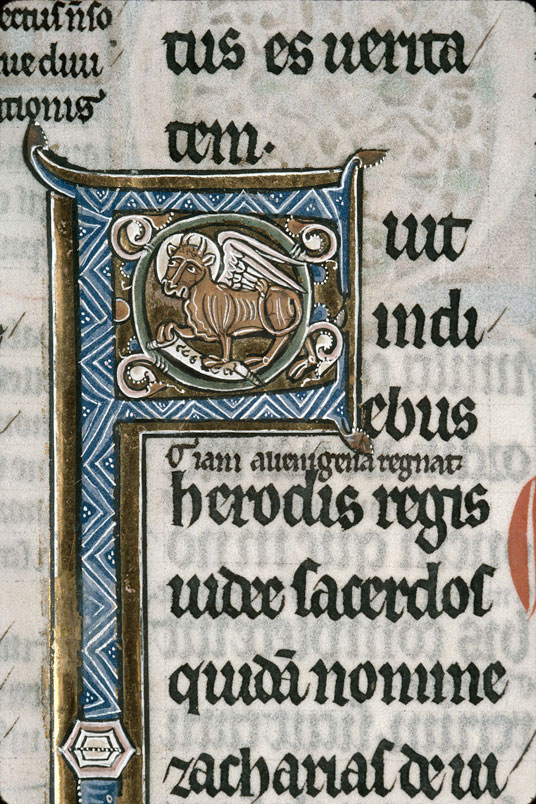 ectus
tionis
tus es uerita
tem.
F
uit
indi
ebus
iam alienigena regnat
herodis regis
iudee sacerdos
quidā nomine
zacharias de ui